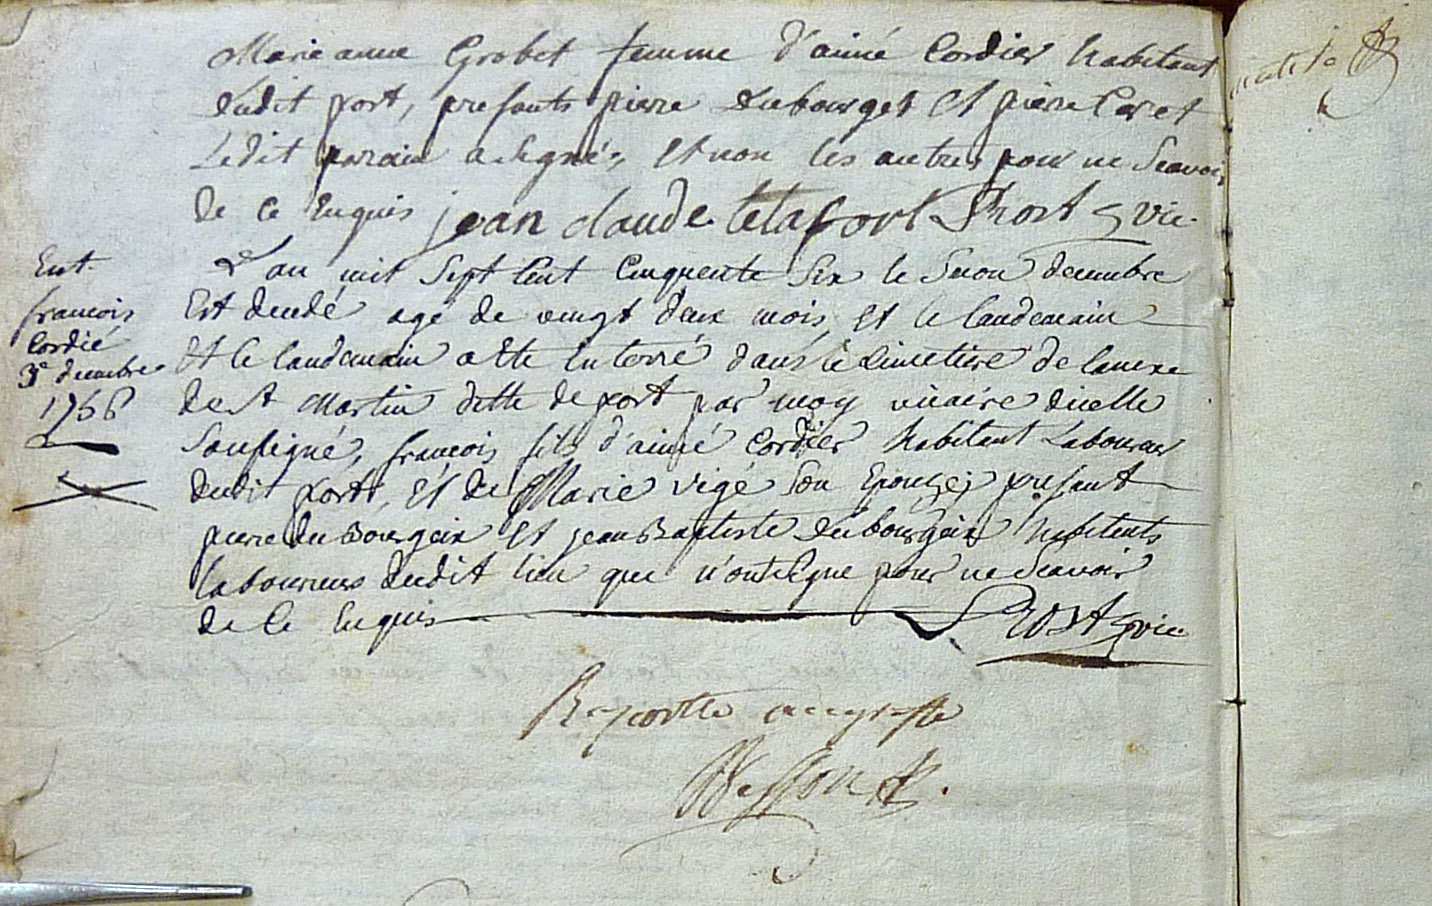 Marie anne Grobet femme d'aimé Cordier habitant
dudit port, presants pierre dubourget et pierre Caret
Ledit parain a signé, et non les autres pour ne Scavoir
de ce enquis jean claude Prost vic.
L'an mil sept cent cinquente six le second decembre
Est decedé agé de vingt deux mois, et le landemain
Et le landemain a ete enterré dans le Cimetiere de lanexe
de St Martin ditte de port par moy vicaire dicelle
Soussigné, francois fils d'aimé Cordier habitant Laboureur
dudit port, et de Marie vigé son Epouse, presant
pierre du Bourgeix et jean Baptiste dubourgeix habitents
laboureurs dudit lieu que n'ont signé pour ne Scavoir
de ce Enquis Prost vic.
Ent.
francois
Cordié
3e decembre
1756